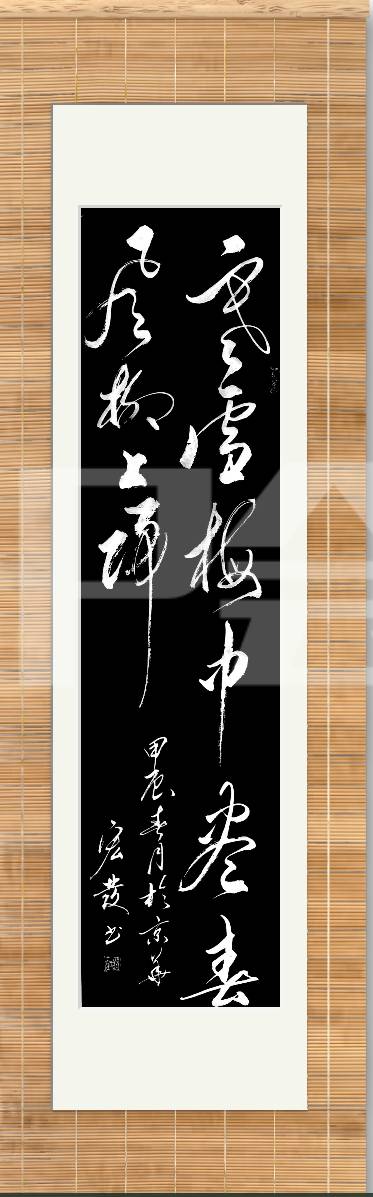 寒雪梅中尽春
风柳上归
甲辰春月於京华
宏发书